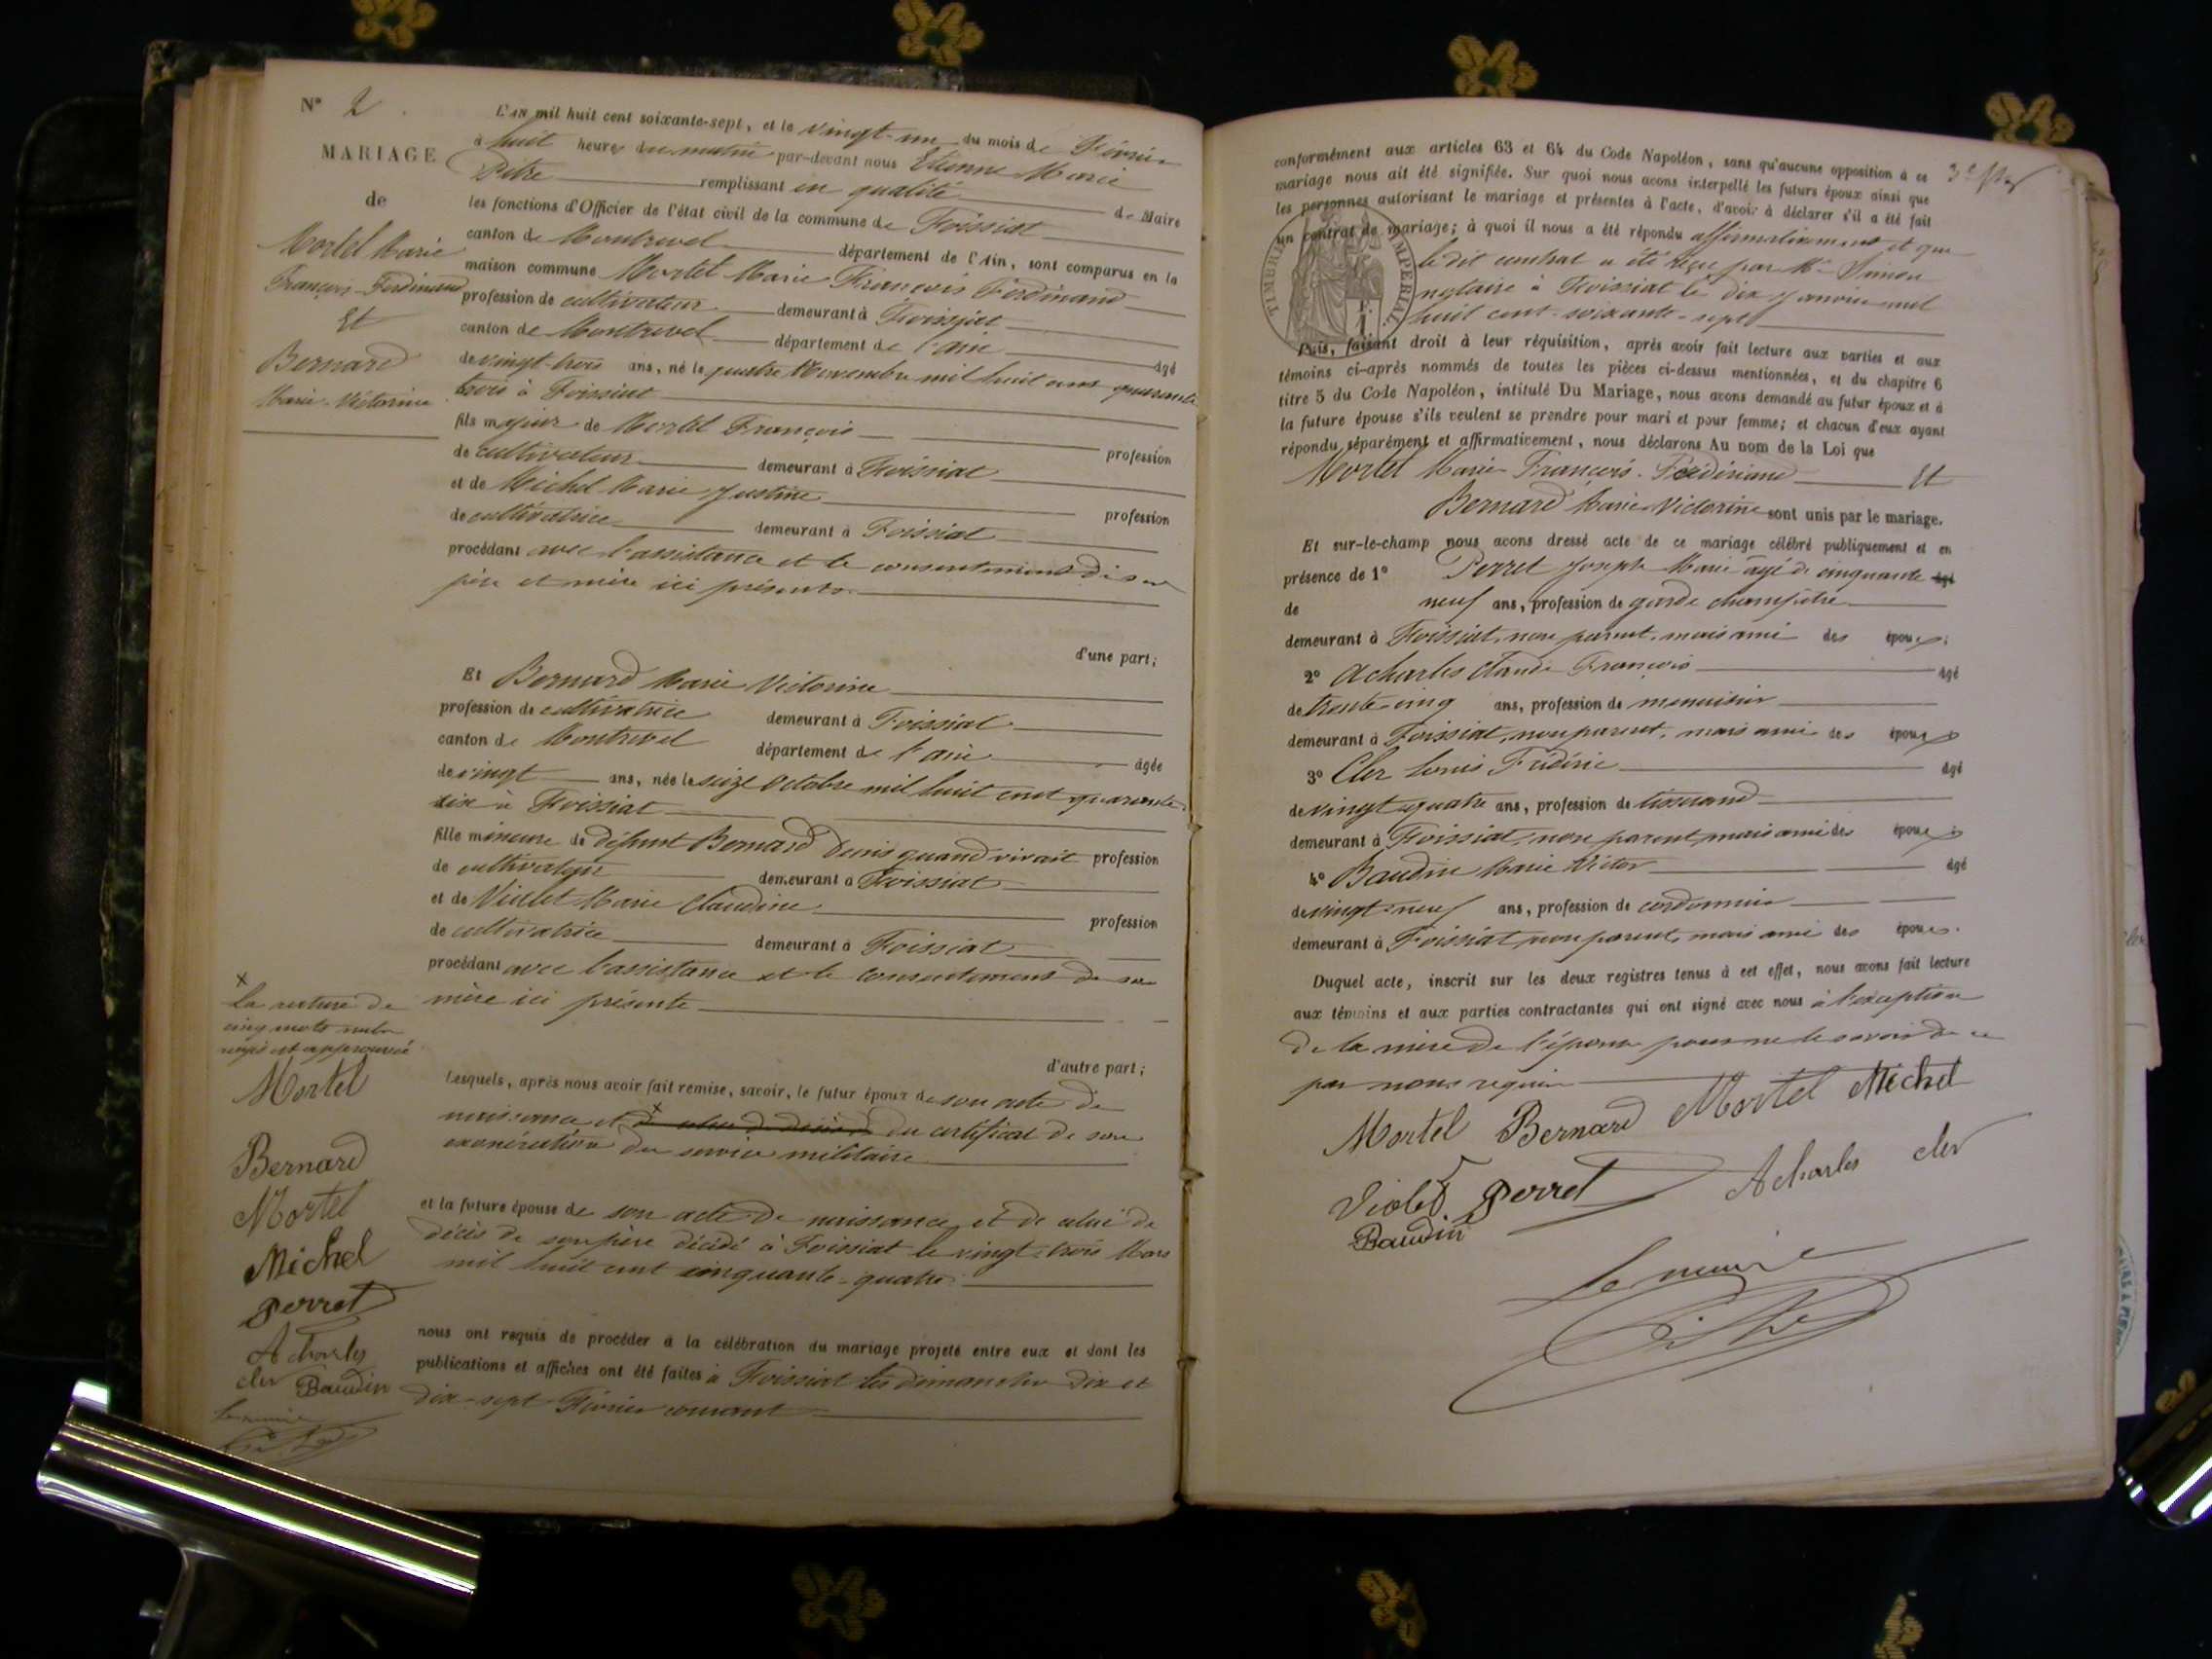 N° 2
MARIAGE
de
Mortel Marie
François Ferdinand
Et
Bernard
Marie Victorine
L'AN mil huit cent soixante-sept, et le vingt-un du mois de Février
à huit heures du matin par-devant nous Etienne Marie
Pitre remplissant en qualité de Maire
les fonctions d'Officier de l'état civil de la commune de Foissiat
canton de Montrevel département de l'Ain, sont comparus en la
maison commune Mortel Marie François Ferdinand
profession de cultivateur demeurant à Foissiat
canton de Montrevel département de l'ain âgé
de vingt-trois ans, né le quatre Novembre mil huit cent quarante
trois à Foissiat
fils majeur de Mortel François profession
de cultivateur demeurant à Foissiat
et de Michel Marie Justine profession
de cultivatrice demeurant à Foissiat
procédant avec l'assistance et le consentement de ses
père et mère ici présents
d'une part;
Et Bernard Marie Victorine
profession de cultivatrice demeurant à Foissiat
canton de Montrevel département de l'ain âgée
de vingt ans, née le seize Octobre mil huit cent quarante
six à Foissiat
fille mineure de défunt Bernard Denis quand vivait profession
de cultivateur demeurant à Foissiat
et de Violet Marie Claudine profession
de cultivatrice demeurant à Foissiat
procédant avec l'assistance et le consentement de sa
mère ici présente
d'autre part;
Lesquels, après nous avoir fait remise, savoir, le futur époux de son acte de
naissance et x du certificat de son
exonération du service militaire
et la future épouse de son acte de naissance et de celui de
décès de son père décédé à Foissiat le vingt-trois Mars
mil huit cent cinquante-quatre
nous ont requis de procéder à la célébration du mariage projeté entre eux et dont les
publications et affiches ont été faites à Foissiat les dimanches dix et
dix-sept Février courant
x
La rature de
cinq mots
est approuvée
Mortel
Bernard
Mortel
Michel
Perret
Acharles
cler Baudin
Le maire
Pitre
3e
conformément aux articles 63 et 64 du Code Napoléon, sans qu'aucune opposition à ce
mariage nous ait été signifiée. Sur quoi nous avons interpellé les futurs époux ainsi que
les personnes autorisant le mariage et présentes à l'acte, d'avoir à déclarer s'il a été fait
un contrat de mariage; à quoi il nous a été répondu affirmativement et que
le dit contrat a été reçu par Me Simon
notaire à Foissiat le dix Janvier mil
huit cent soixante-sept
TIMBRE IMPERIAL
Puis, faisant droit à leur réquisition, après avoir fait lecture aux parties et aux
témoins ci-après nommés de toutes les pièces ci-dessus mentionnées, et du chapitre 6
titre 5 du Code Napoléon, intitulé Du Mariage, nous avons demandé au futur époux et à
la future épouse s'ils veulent se prendre pour mari et pour femme; et chacun d'eux ayant
répondu séparément et affirmativement, nous déclarons Au nom de la Loi que
Mortel Marie François Ferdinand Et
Bernard Marie Victorine sont unis par le mariage.
Et sur-le-champ nous avons dressé acte de ce mariage célébré publiquement et en
présence de 1° Perret Joseph Marie âgé de cinquante âgé
de neuf ans, profession de garde champêtre
demeurant à Foissiat, non parent, mais ami des époux;
2° Acharles Claude François âgé
de trente-cinq ans, profession de menuisier
demeurant à Foissiat, non parent, mais ami des époux
3° Cler Louis Frédéric âgé
de vingt quatre ans, profession de tisserand
demeurant à Foissiat, non parent, mais ami des époux;
4° Baudin Marie Victor âgé
de vingt-neuf ans, profession de cordonnier
demeurant à Foissiat non parent, mais ami des époux.
Duquel acte, inscrit sur les deux registres tenus à cet effet, nous avons fait lecture
aux témoins et aux parties contractantes qui ont signé avec nous à l'exception
de la mère de l'épouse pour ne le savoir de ce
par nous requise
Mortel Bernard Mortel Michel
Violet Perret Acharles cler
Baudin
Le maire
Pitre